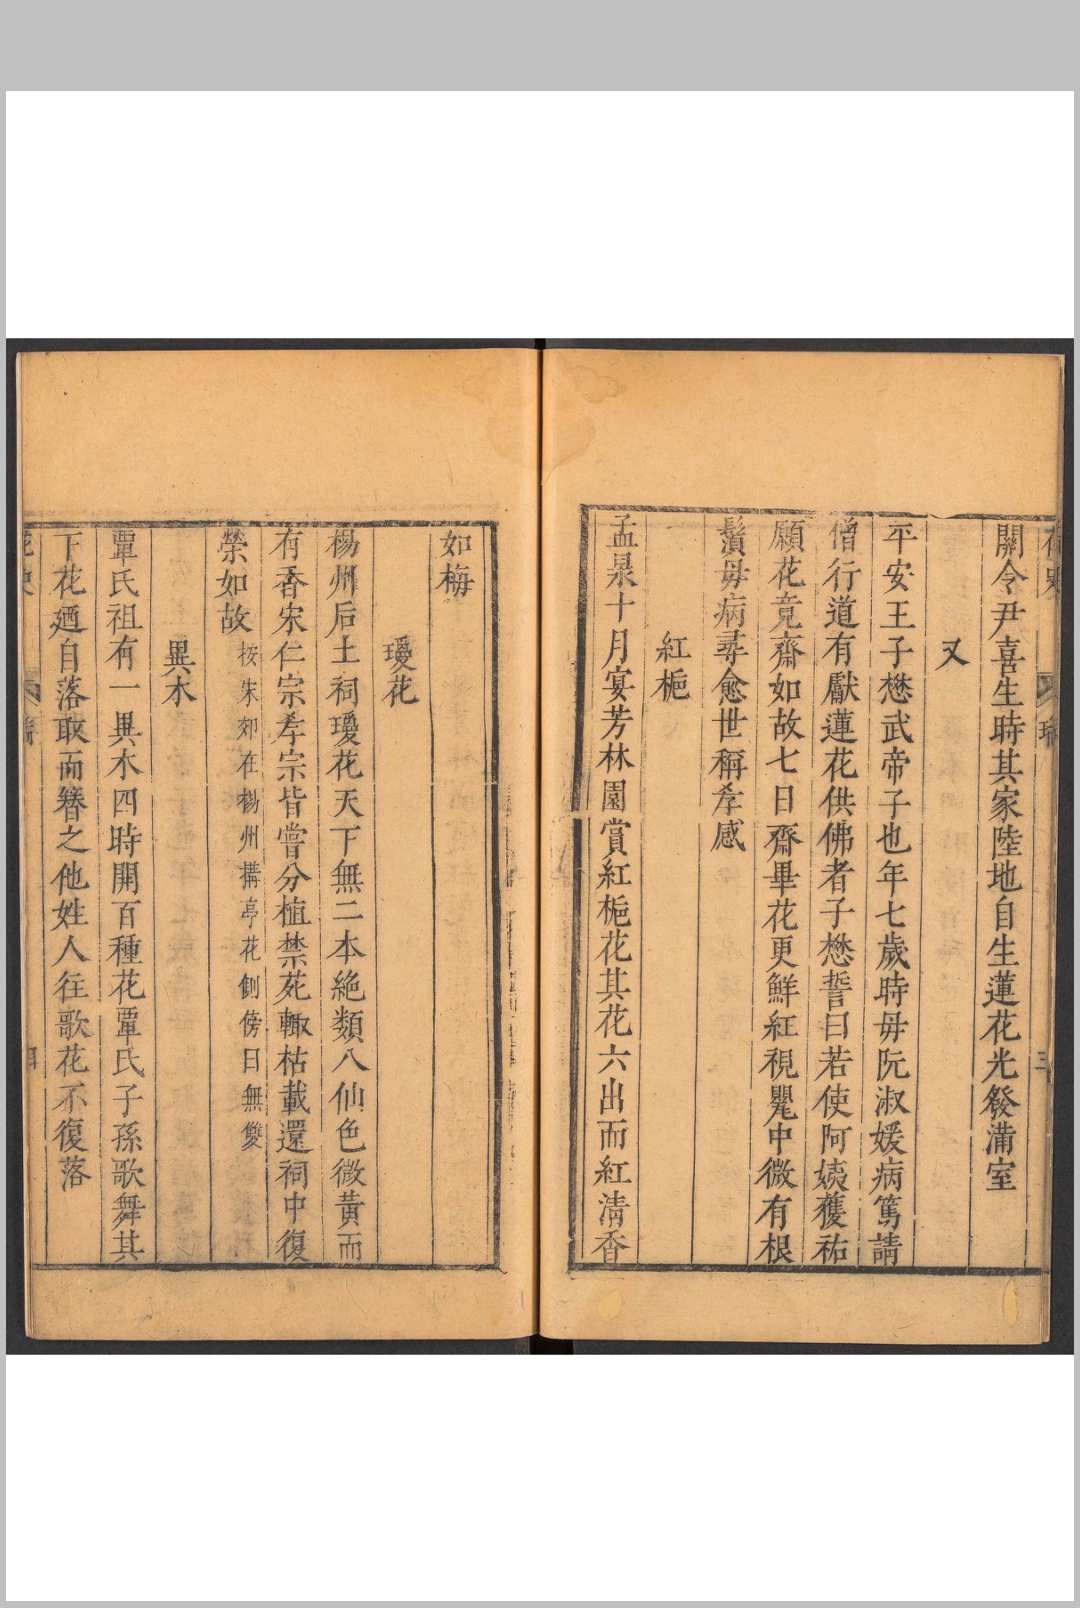 關令尹喜生時其家陸地自生蓮花光發滿室
又
平安王子懋武帝子也年七歲時毋阮淑媛病篤請
僧行道有獻蓮花供佛者子懋誓曰若使阿姨獲祐
願花竟齋如故七日齋畢花更鮮紅視甖中微有根
鬚毋病尋愈世稱孝感
紅梔
孟杲十月宴芳林園賞紅梔花其花六出而紅清香
如梅
瓊花
楊州后土祠瓊花天下無二本絶類八仙色微黃而
有香宋仁宗孝宗皆嘗分植禁苑輙枯載還祠中復
榮如故 按朱郊在楊州搆亭花側傍曰無雙
異木
覃氏祖有一異木四時開百種花覃氏子孫歌舞其
下花廼自落取而簪之他姓人往歌花不復落